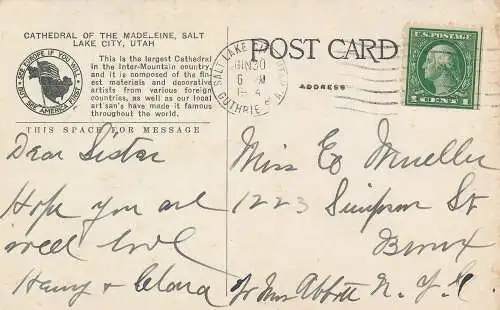 CATHEDRAL OF THE MADELEINE, SALT
LAKE CITY, UTAH
This is the largest Cathedral
in the Inter-Mountain country,
and it is composed of the fin-
est materials and decorative
artists from various foreign
countries, as well as our local
artisan's have made it famous
throughout the world.
SEE EUROPE IF YOU WILL
BUT SEE AMERICA FIRST
THIS SPACE FOR MESSAGE
Dear Sister
Hope you are
well love
Henry + Clara
POST CARD
SALT LAKE CITY
JUN 30
GUTHRIE
ADDRESS
U.S. POSTAGE
1 CENT 1
Miss Ed Mueller
1223 Simpson St
Bronx
Mrs Abbott N. Y. C.